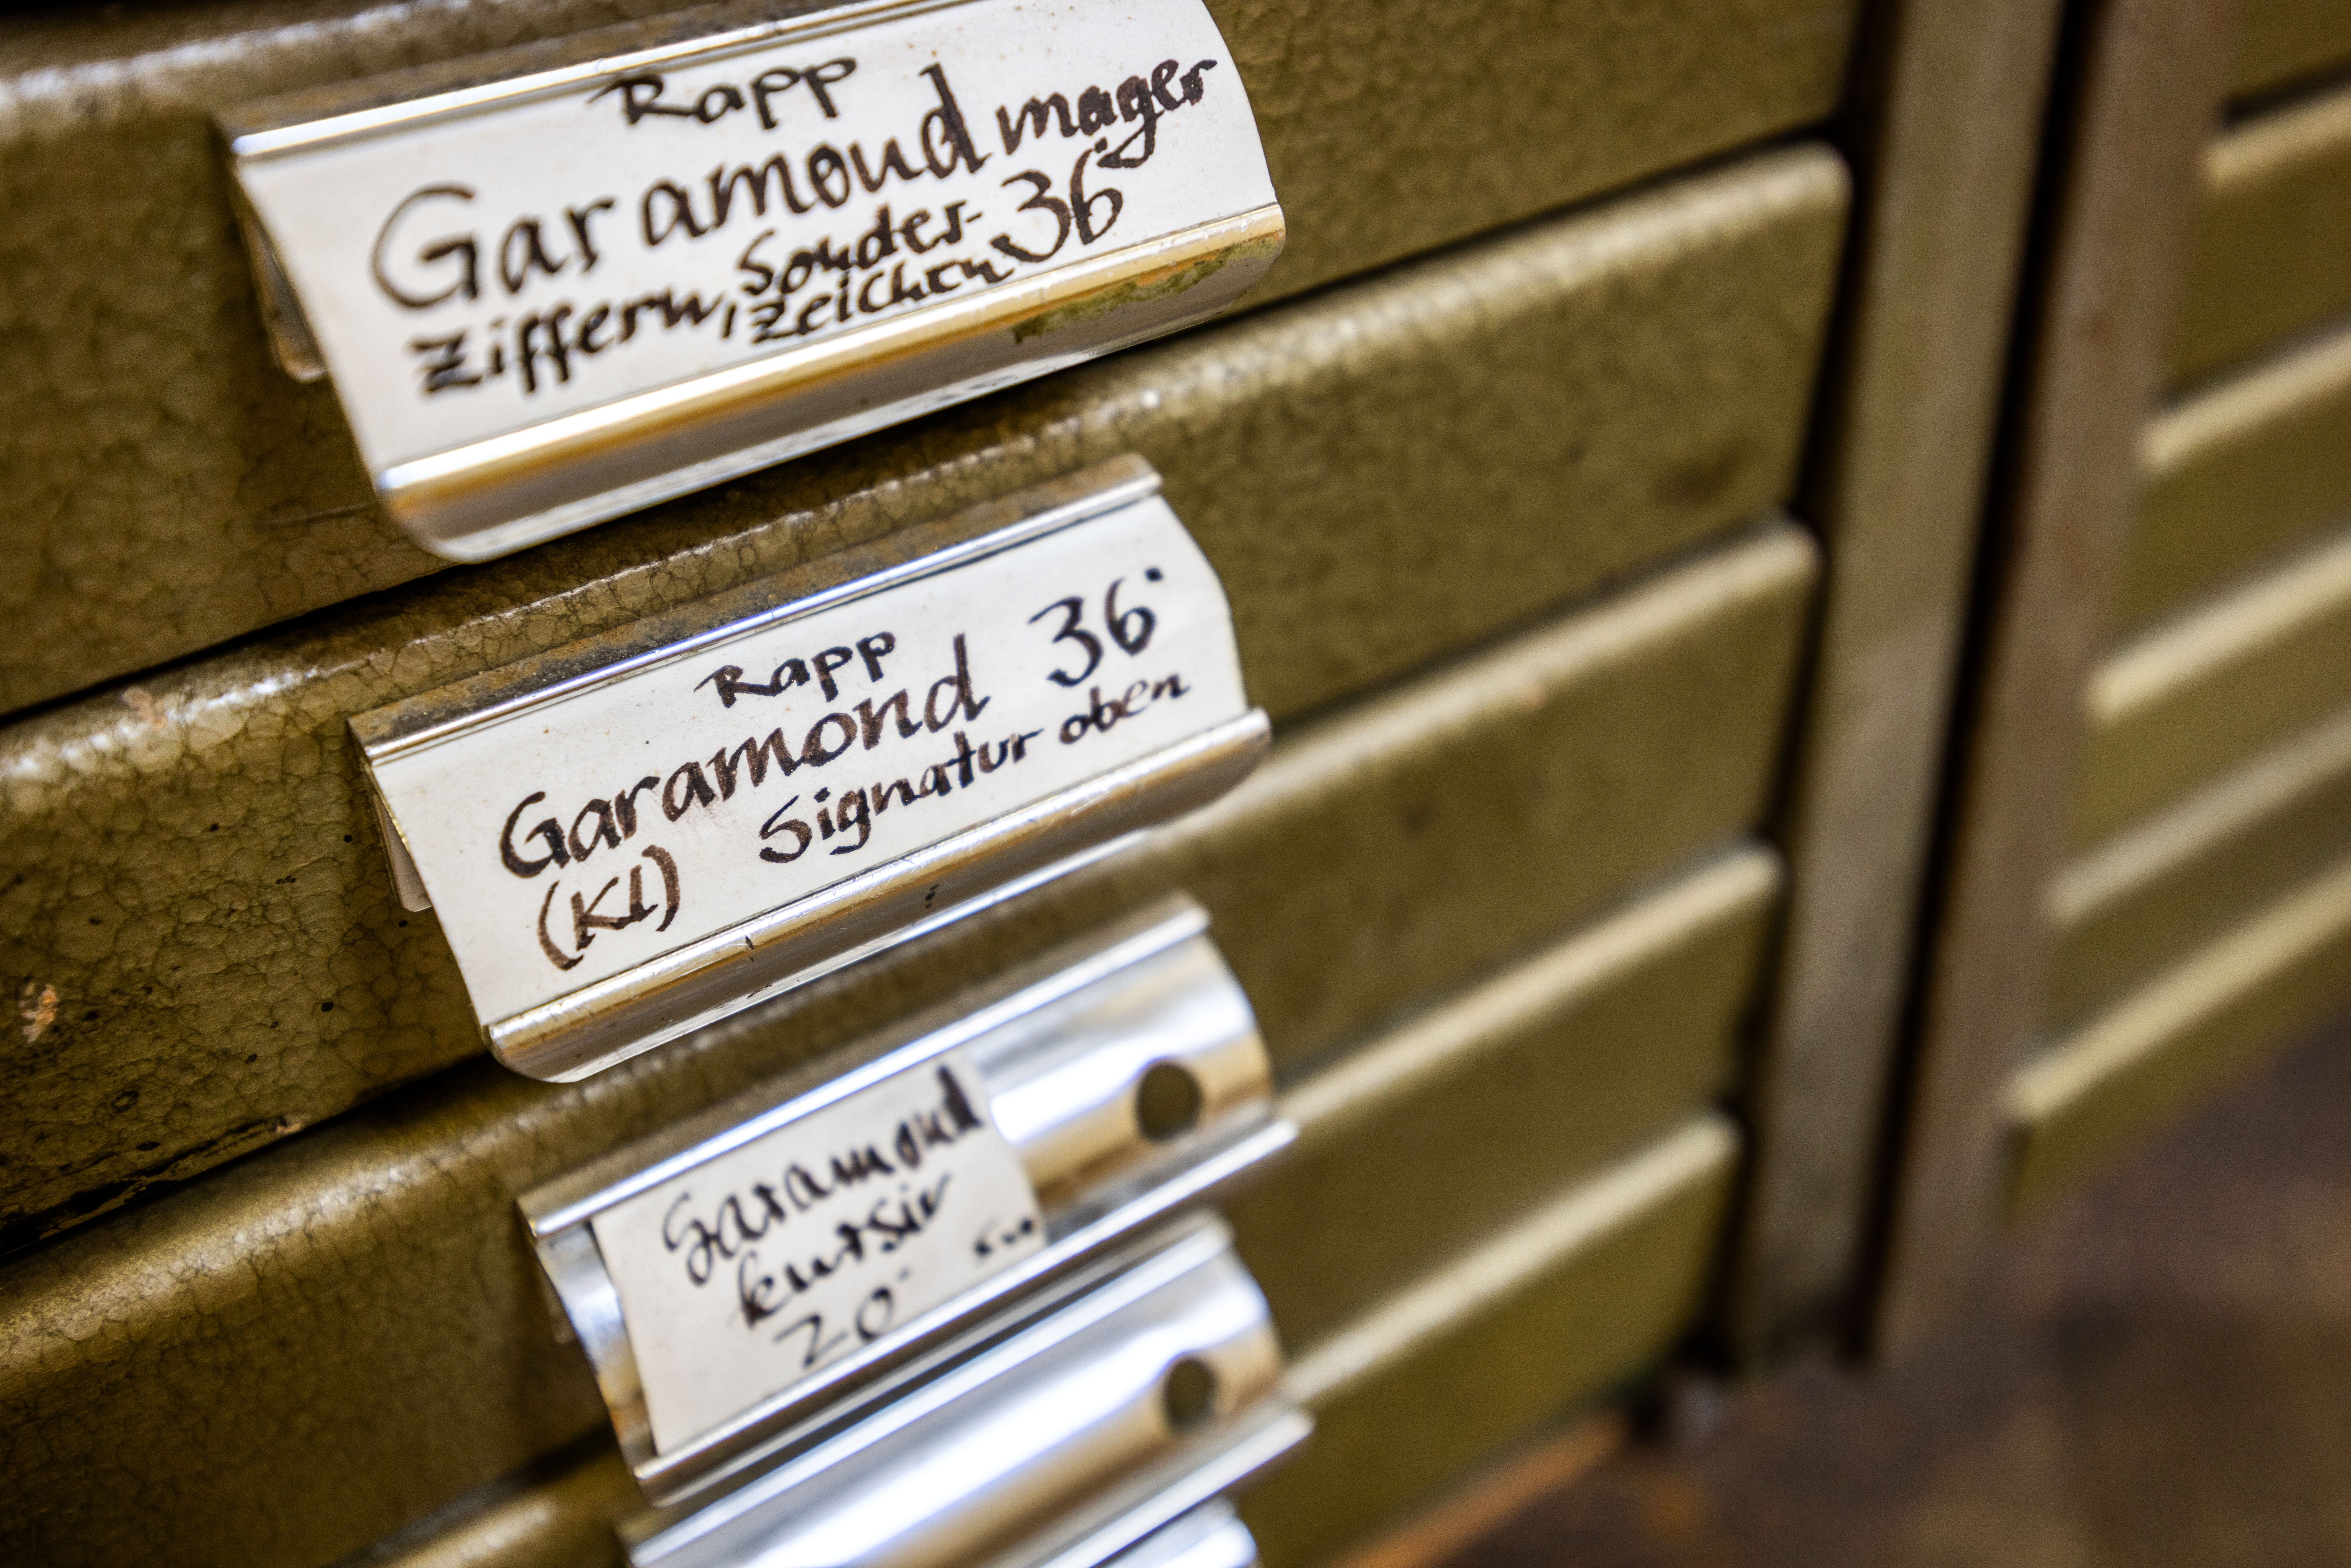 Rapp
Garamond mager
Ziffern, Sonder- 36
zeichen
Rapp
Garamond 36
(Kl) Signatur oben
Garamond
kursiv
20